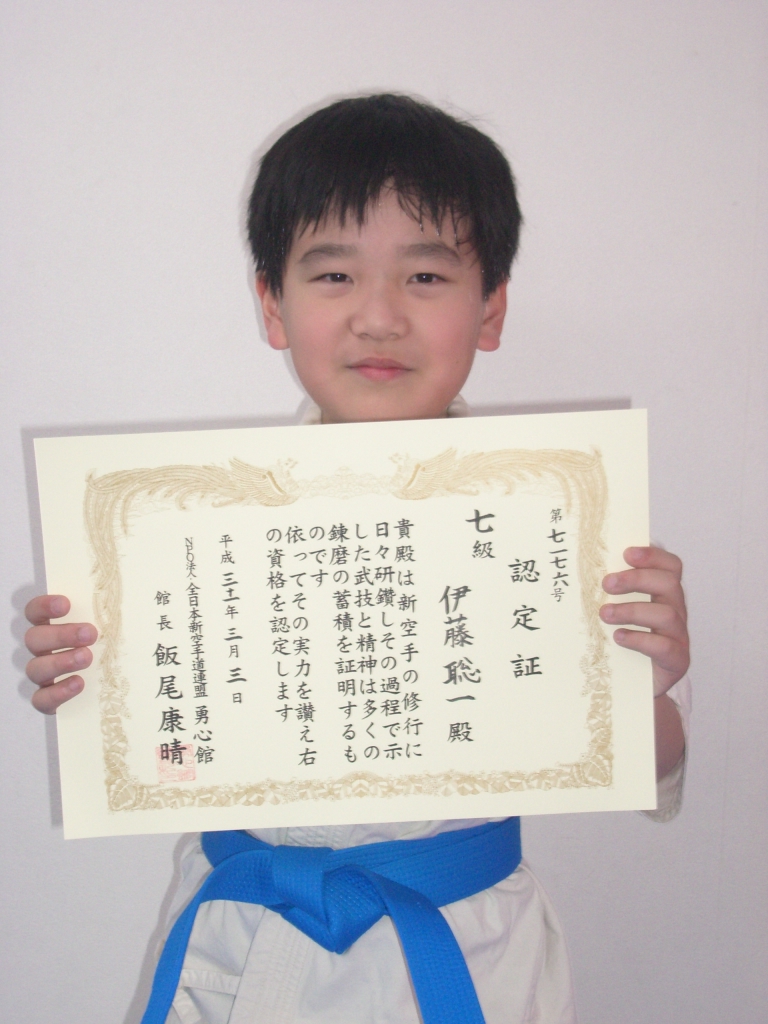 第七一七六号
認定証
七級
伊藤聡一殿
貴殿は新空手の修行に
日々研鑽しその過程で示
した武技と精神は多くの
錬磨の蓄積を証明するも
のです
依ってその実力を讃え右
の資格を認定します
平成三十一年三月三日
NPO法人・全日本新空手道連盟 勇心館
館長 飯尾康晴